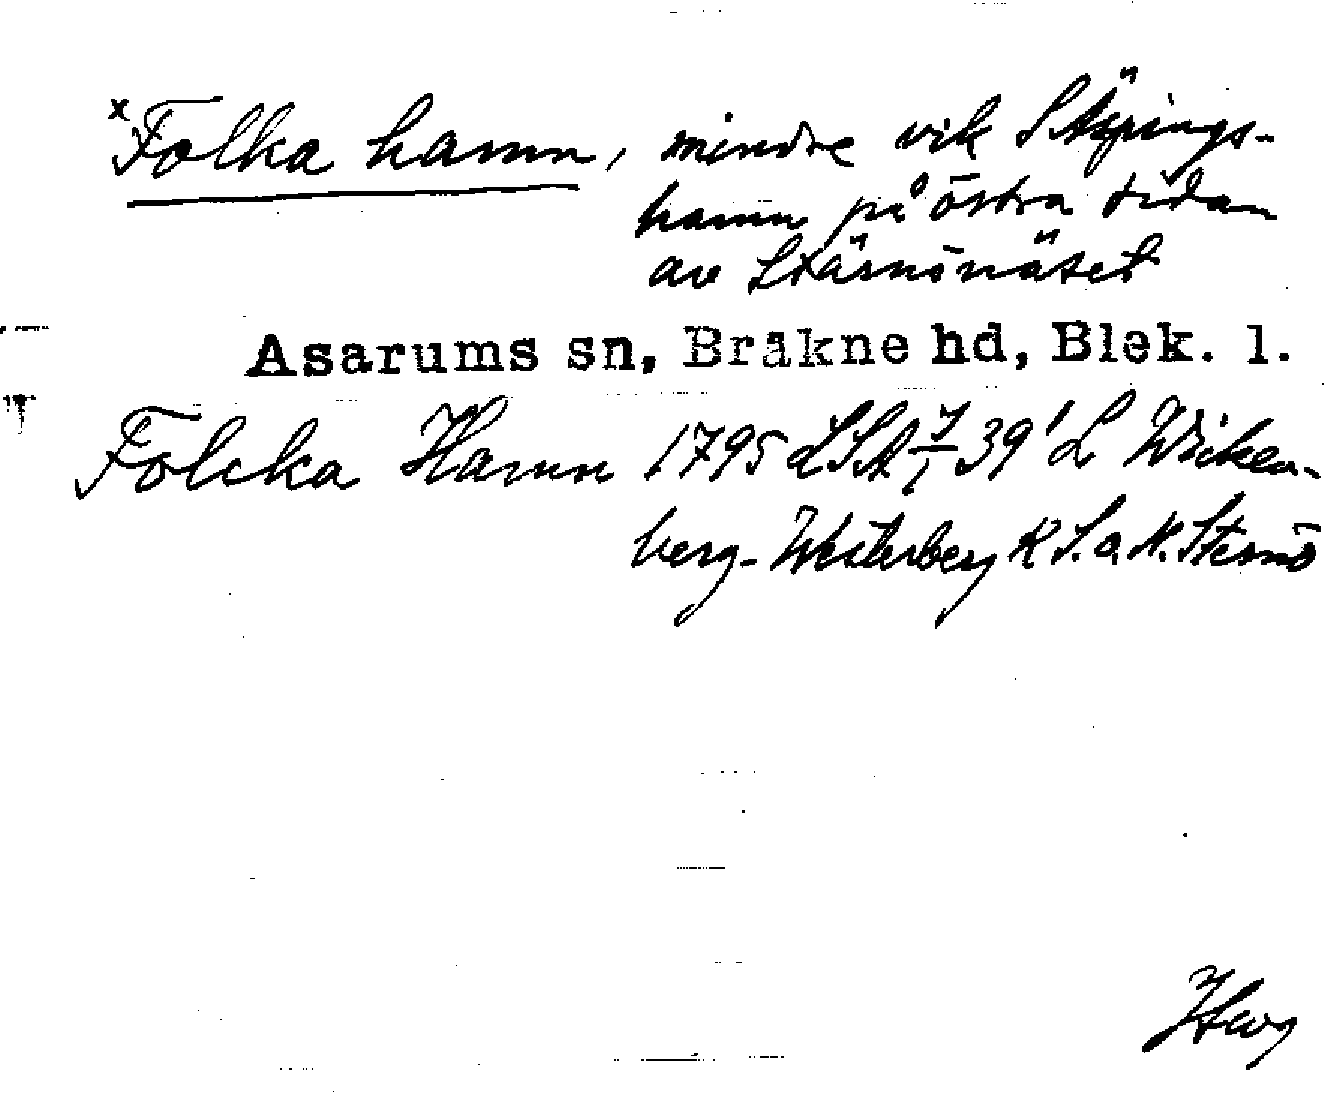 x Folka hamn, mindre vik S Köpings-
hamn på östra sidan
av Stärnönäset
Asarums sn, Bräkne hd, Blek. l.
Folcka Hamn 1795 LSA 39' L Wicken-
berg-Westerberg K S. o. N. Sternö